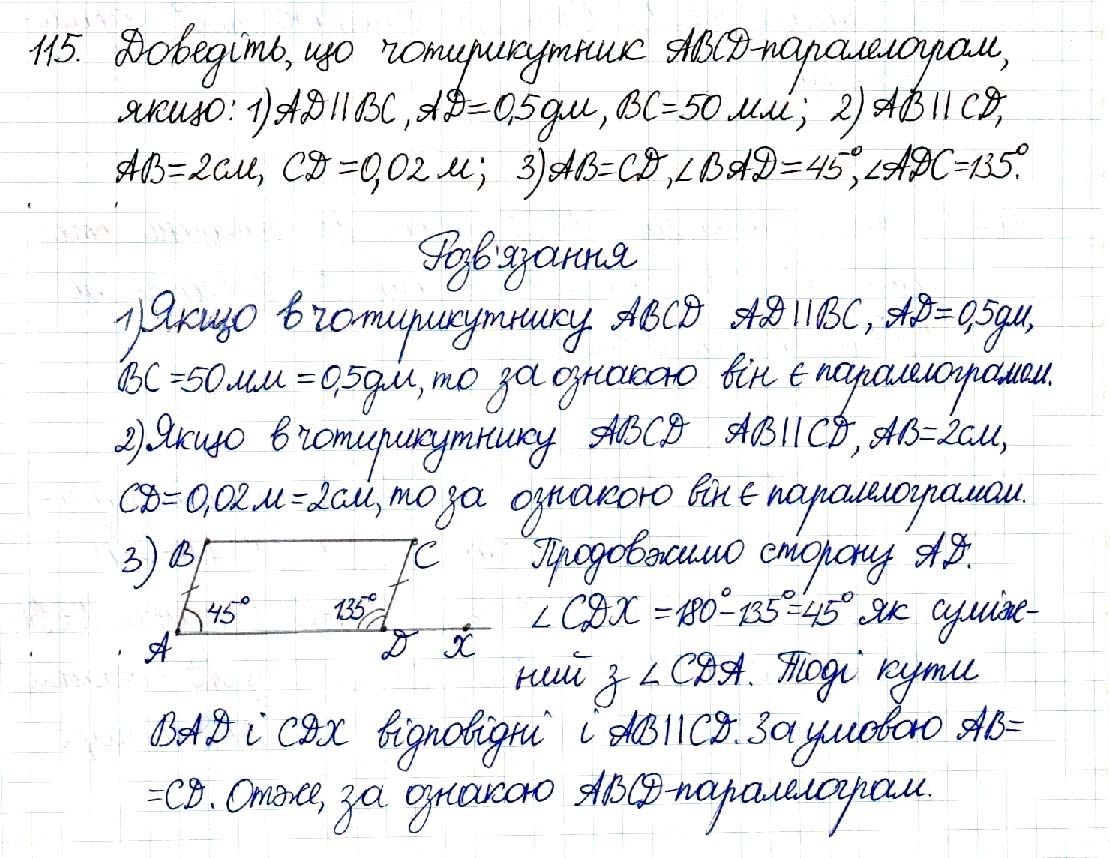 115. Доведіть, що чотирикутник ABCD-паралелограм,
якщо: 1) AD||BC, AD=0,5дм, BC=50 мм; 2) AB||CD,
AB=2см, CD=0,02 м; 3) AB=CD, ∠BAD=45°, ∠ADC=135°.
Розв'язання
1) Якщо в чотирикутнику ABCD AD||BC, AD=0,5дм,
BC=50мм=0,5дм, то за ознакою він є паралелограмом.
2) Якщо в чотирикутнику ABCD AB||CD, AB=2см,
CD=0,02м=2см, то за ознакою він є паралелограмом.
3) B C Продовжимо сторону AD.
45° 135° ∠CDX=180°-135°=45° як суміж-
A D X ний з ∠CDA. Тоді кути
BAD і CDX відповідні і AB||CD. За умовою AB=
=CD. Отже, за ознакою ABCD-паралелограм.